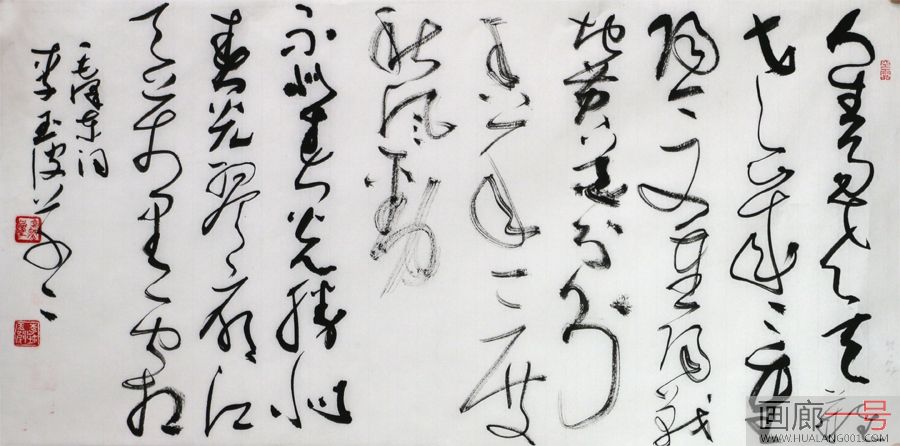 人生易老天
难老岁岁重
阳今又重阳战
地黄花分外
香一年一度
秋风劲
不似春光胜似
春光寥廓江
天万里霜
毛泽东词
李玉波
画廊一号
WWW.HUALANG001.COM